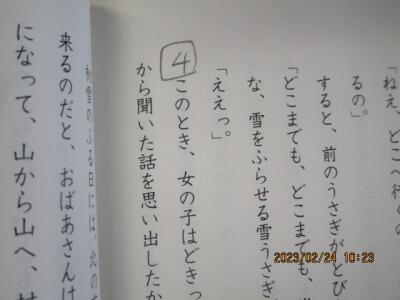 「ねえ、どこへ行くの
るの」
すると、前のうさぎがとび
「どこまでも、どこまでも、
な、雪をふらせる雪うさぎ
「ええっ。」
4
このとき、女の子はどきっ
から聞いた話を思い出したか
初雪のふる日には、北の
来るのだと、おばあさんは
になって、山から山へ、
2023/02/24 10:23